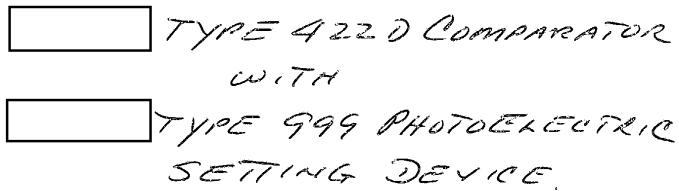 TYPE 422D COMPARATOR
WITH
TYPE 999 PHOTOELECTRIC
SETTING DEVICE.